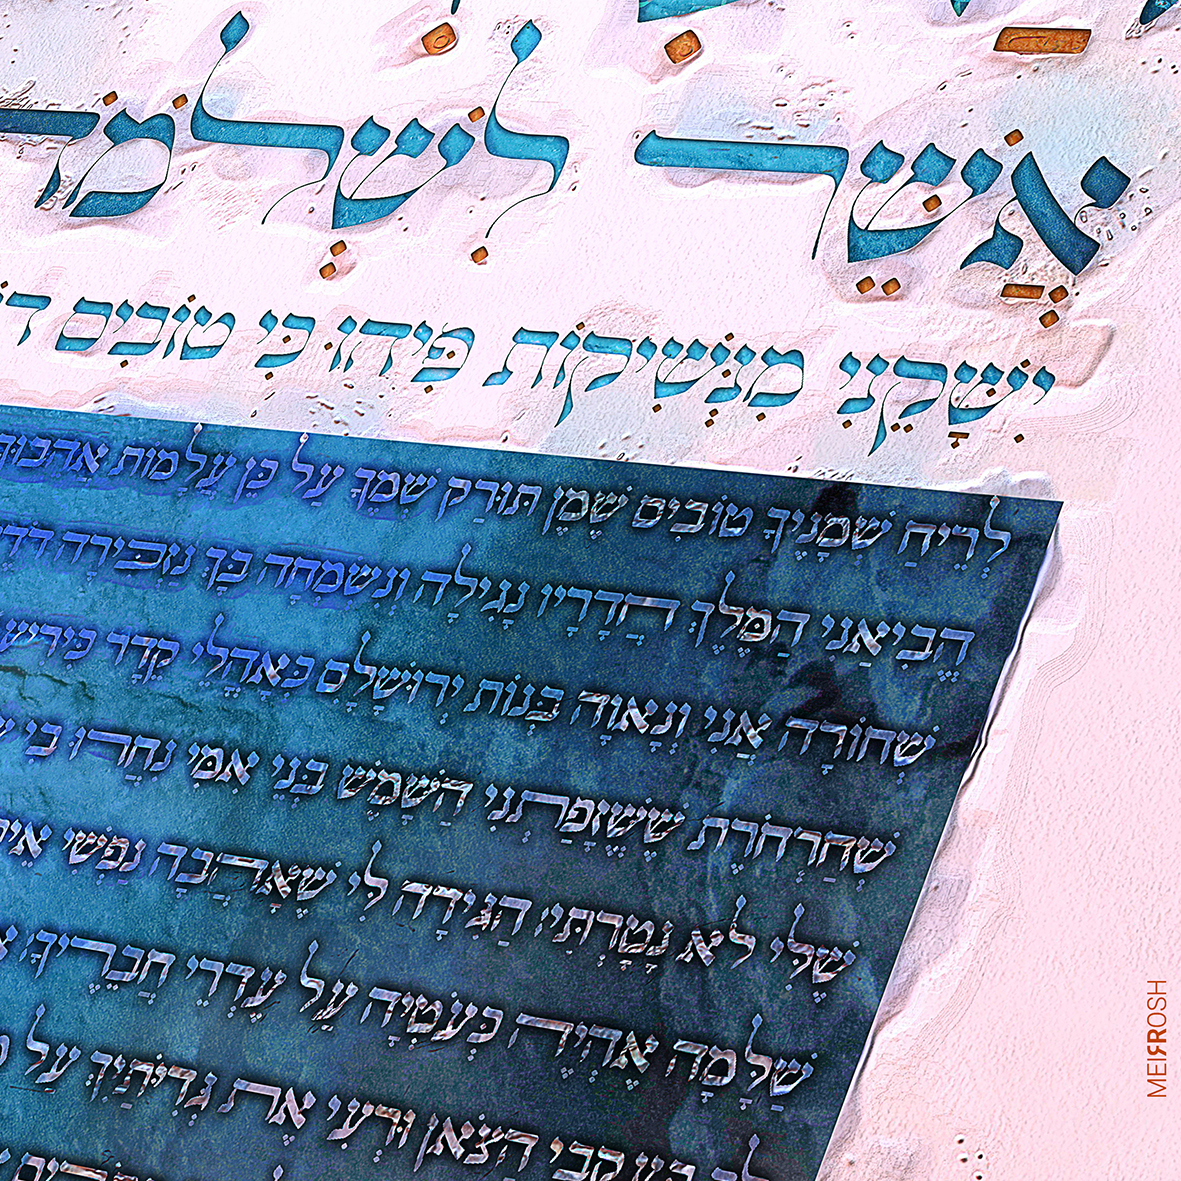 אֲשֶׁר לִשְׁלֹמֹה
יִשָּׁקֵנִי מִנְּשִׁיקוֹת פִּיהוּ כִּי טוֹבִים
לְרֵיחַ שְׁמָנֶיךָ טוֹבִים שֶׁמֶן תּוּרַק שְׁמֶךָ עַל כֵּן עֲלָמוֹת אֲהֵבוּךָ
הֱבִיאַנִי הַמֶּלֶךְ חֲדָרָיו נָגִילָה וְנִשְׂמְחָה בָּךְ נַזְכִּירָה
שְׁחוֹרָה אֲנִי וְנָאוָה בְּנוֹת יְרוּשָׁלִָם כְּאָהֳלֵי קֵדָר
שְׁחַרְחֹרֶת שֶׁשֱּׁזָפַתְנִי הַשָּׁמֶשׁ בְּנֵי אִמִּי נִחֲרוּ בִי
שֶׁלִּי לֹא נָטָרְתִּי הַגִּידָה לִּי שֶׁאָהֲבָה נַפְשִׁי
שַׁלָּמָה אֶהְיֶה כְּעֹטְיָה עַל עֶדְרֵי חֲבֵרֶיךָ
לָךְ בְּעִקְבֵי הַצֹּאן וּרְעִי אֶת גְּדִיֹּתַיִךְ עַל
MEIRROSH